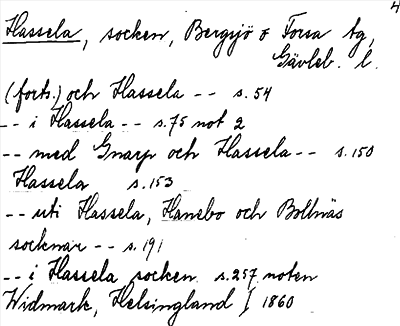 4
Hassela, socken, Bergsjö o Forsa tg,
Gävleb. l.
(forts.) och Hassela -- s. 54
-- i Hassela -- s. 75 not 2
-- med Gnarp och Hassela -- s. 150
Hassela s. 153
-- uti Hassela, Hanebo och Bollnäs
socknar -- s. 191
-- i Hassela socken s. 257 noten
Widmark, Helsingland I 1860